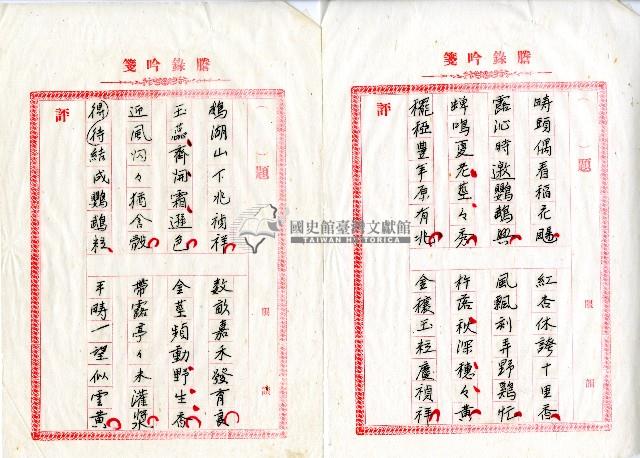 謄錄吟箋
題
限韻
疇頭偶看稻花颺
紅杏休誇十里香
露沁時邀鸚鵡興
風飄刺弄野鷄忙
蟬鳴夏老莖々秀
杵落秋深穗々黃
䆉稏豐年原有兆
金穰玉粒慶禎祥
評
謄錄吟箋
題
限韻
鵝湖山下兆禎祥
數畝嘉禾發育良
玉蕊齊開霜遜色
金莖頻動野生香
近風灼々猶含殼
帶露亭々未灌漿
得待結成鸚鵡粒
平疇一望似雲黃
評
國史館臺灣文獻館
TAIWAN HISTORICA